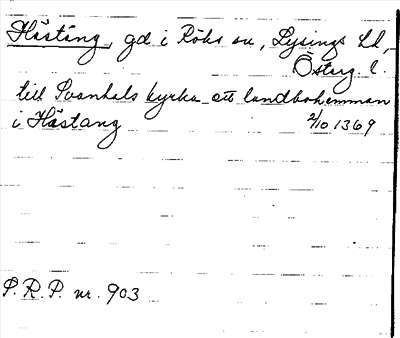 Håstång, gd i Röks sn, Lysings hd,
Österg. l.
till Svanhals kyrka ett landbohemman
i Håstang 2/10 1369
P.R.P. nr. 903